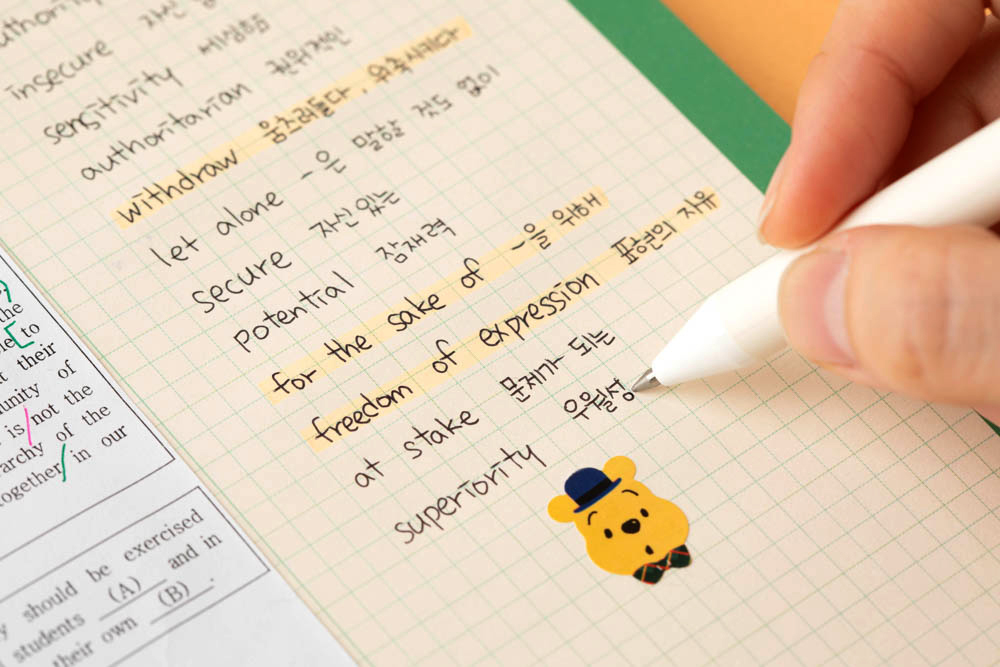 insecure 자신
sensitivity 세심함
authoritarian 권위적인
withdraw 움츠러들다, 위축시키다
let alone -은 말할 것도 없이
secure 자신 있는
potential 잠재력
for the sake of -을 위해
freedom of expression 표현의 자유
at stake 문제가 되는
superiority 우월성
the
to
their
of
is not the
of the
together in our
should be exercised
students (A) and in
their own (B) .